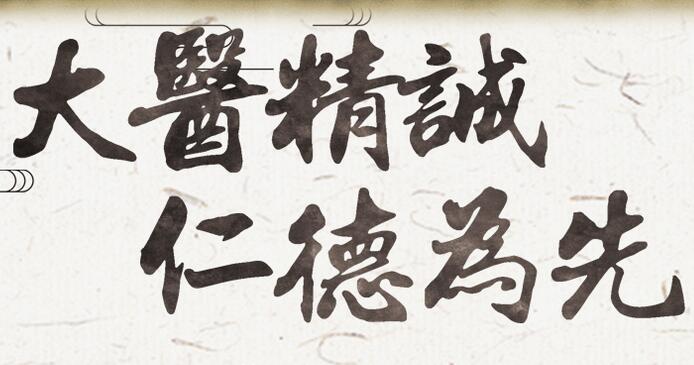 大醫精誠
仁德為先